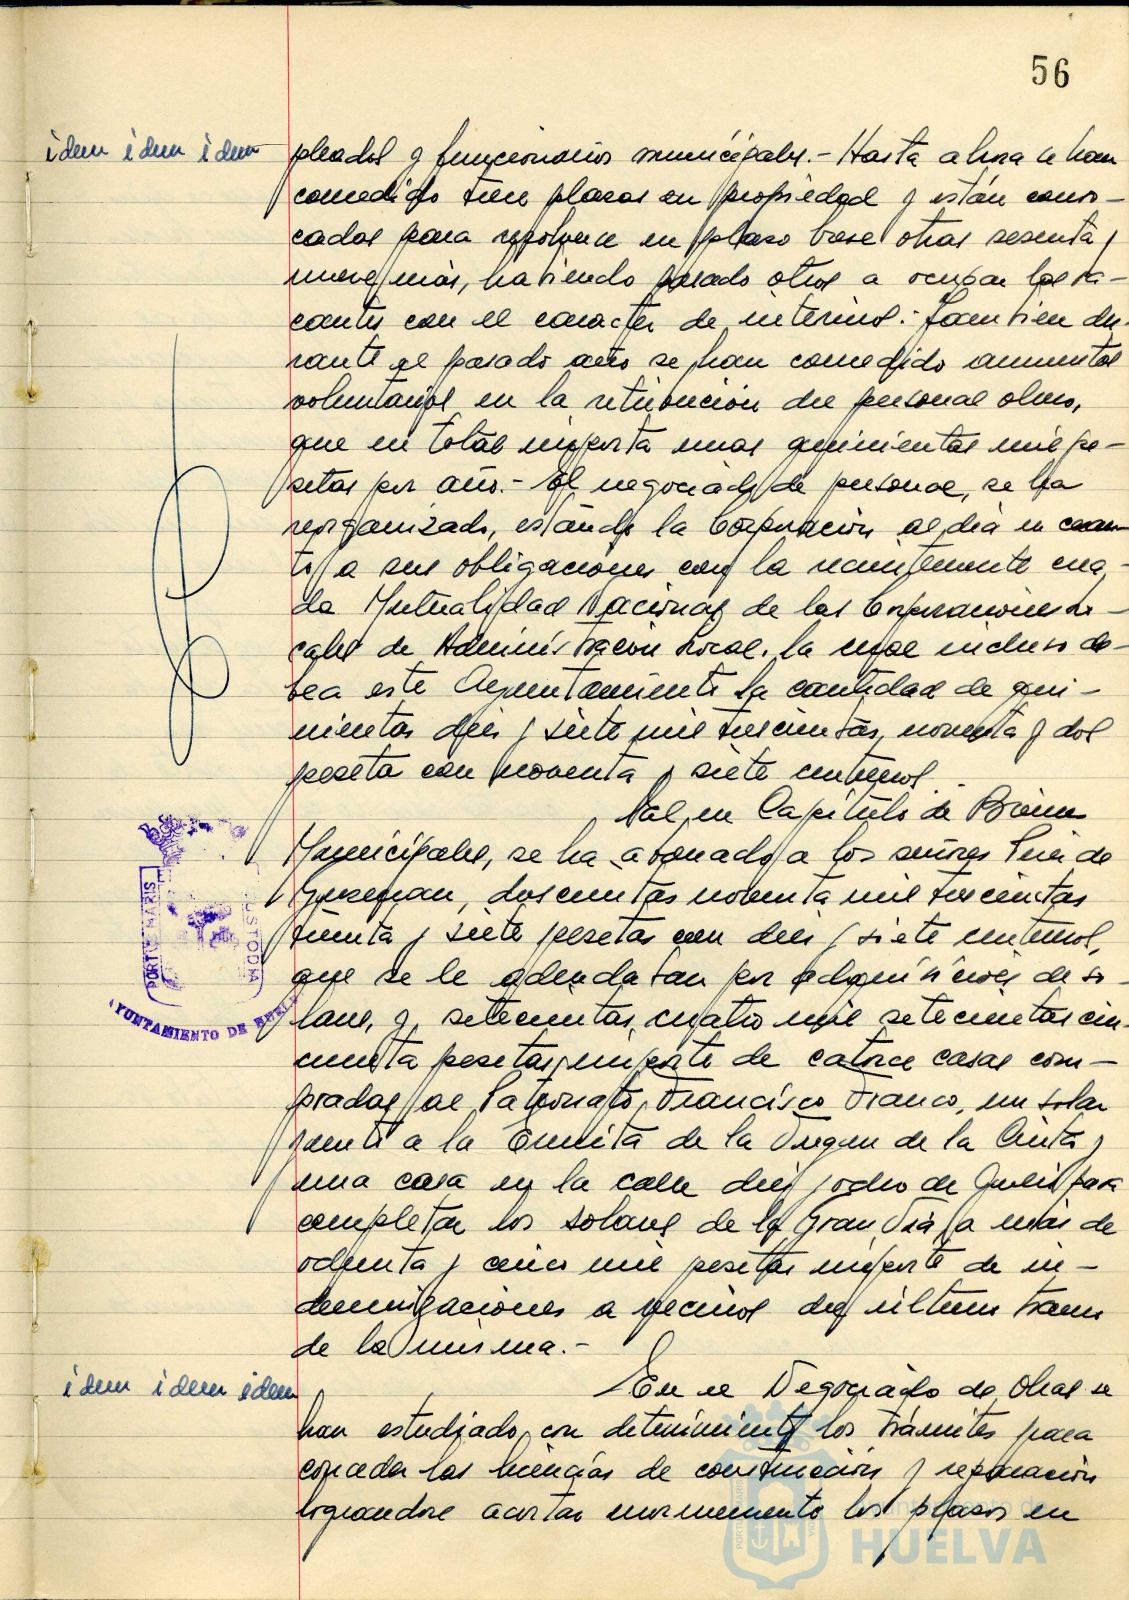 56
idem idem idem
pleados y funcionarios municipales.- Hasta ahora se han
concedido trece plazas en propiedad y están convo-
cadas para resolverse en plazo breve otras sesenta y
nueve más, habiendo pasado otros a ocupar las va-
cantes con el caracter de interinos.- Tambien du-
rante el pasado año se han concedido aumentos
voluntarios en la retribucion del personal obrero,
que en total importa unas quinientas mil pe-
setas por año.- El negociado de personal, se ha
reorganizado, estando la Corporación al dia en cuan-
to a sus obligaciones con la recientemente crea-
da Mutualidad Nacional de las Corporaciones Lo-
cales de Administracion Local, la cual incluso de-
bea este Ayuntamiento la cantidad de qui-
nientas diez y siete mil trescientas, noventa y dos
peseta con noventa y siete centimos.
en Capítulo de Bienes
Municipales, se ha abonado a los señores Perez de
Guzman, doscientas noventa mil trescientas
treinta y siete pesetas con diez y siete centimos,
que se le adeudaban por adquisición de so-
lares, y setecientas cuatro mil setecientas cin-
cuenta pesetas, importe de catorce casas com-
pradas al Patronato, Francisco Franco, un solar
junto a la Ermita de la Virgen de la Cinta y
una casa en la calle diez y ocho de Julio para
completar los solares de la Gran Vía, a más de
ochenta y cinco mil pesetas importe de in-
demnizaciones a vecinos del ultimo tramo
de la misma.-
idem idem idem
En el Negociado de Obras se
han estudiado, con detenimiento los trámites para
conceder las licencias de construcción y reparación
lograndose acortar enormemente los plazos en
PORTUS MARIS
CUSTODIA
AYUNTAMIENTO DE HUELVA
Ayuntamiento de
HUELVA